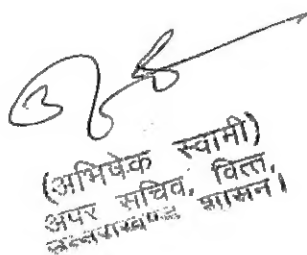 (अभिषेक स्वामी)
अपर सचिव, वित्त,
उत्तराखण्ड शासन।